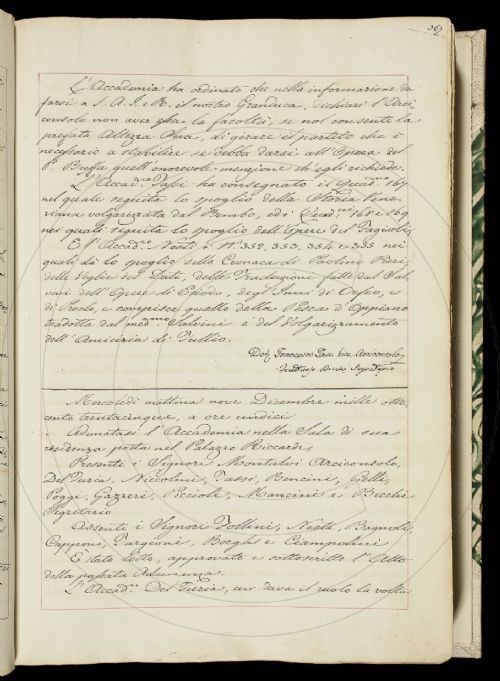 367
L'Accademia ha ordinato che nella informazione da
farsi a S. A. I. e R. il nostro Granduca, dichiari l'Arci-
consolo non aver la facoltà, se nol consente la
prefata Altezza Sua, di girare il partito che è
necessario a stabilire se debba darsi all'Opera del
P. Buffa quell'onorevole menzione ch'egli richiede.
L'Accad.co Tassi ha consegnato il Quad.no 167
nel quale seguita lo spoglio della Storia Vene-
ziana volgarizzata dal Bembo, ed i Quad.ni 168 e 169
nei quali seguita lo spoglio dell'Opere del Fagioli.
E l'Accad.co Nesti i N.i 352, 353, 354 e 355 nei
quali dà lo spoglio della Cronaca di Paolino Pieri,
delle Veglie del Dati, delle Traduzioni fatte dal Sal-
vini dell'Opere di Esiodo, degl'Inni di Orfeo, e
di Proclo, e compisce quello della Pesca d'Oppiano
tradotta dal med.mo Salvini e del Volgarizzamento
dell'Amicizia di Tullio.
Dott. Francesco Vice Arciconsolo
Segretario
Mercoledì mattina nove Dicembre mille otto-
cento trentacinque, a ore undici
Adunatasi l'Accademia nella Sala di sua
residenza posta nel Palazzo Riccardi,
Presenti i Signori Montalvi Arciconsolo,
Del Furia, Niccolini, Tassi, Bencini, Gelli,
Poggi, Gazzeri, Piccioli, Mancini e Becchi
Segretario
Assenti i Signori Follini, Nesti, Bagnoli,
Capponi, Targioni, Borghi e Ciampolini
È stato letto, approvato e sottoscritto l'Atto
della passata Adunanza.
L'Accad.co Del Furia, cui dava il ruolo la volta